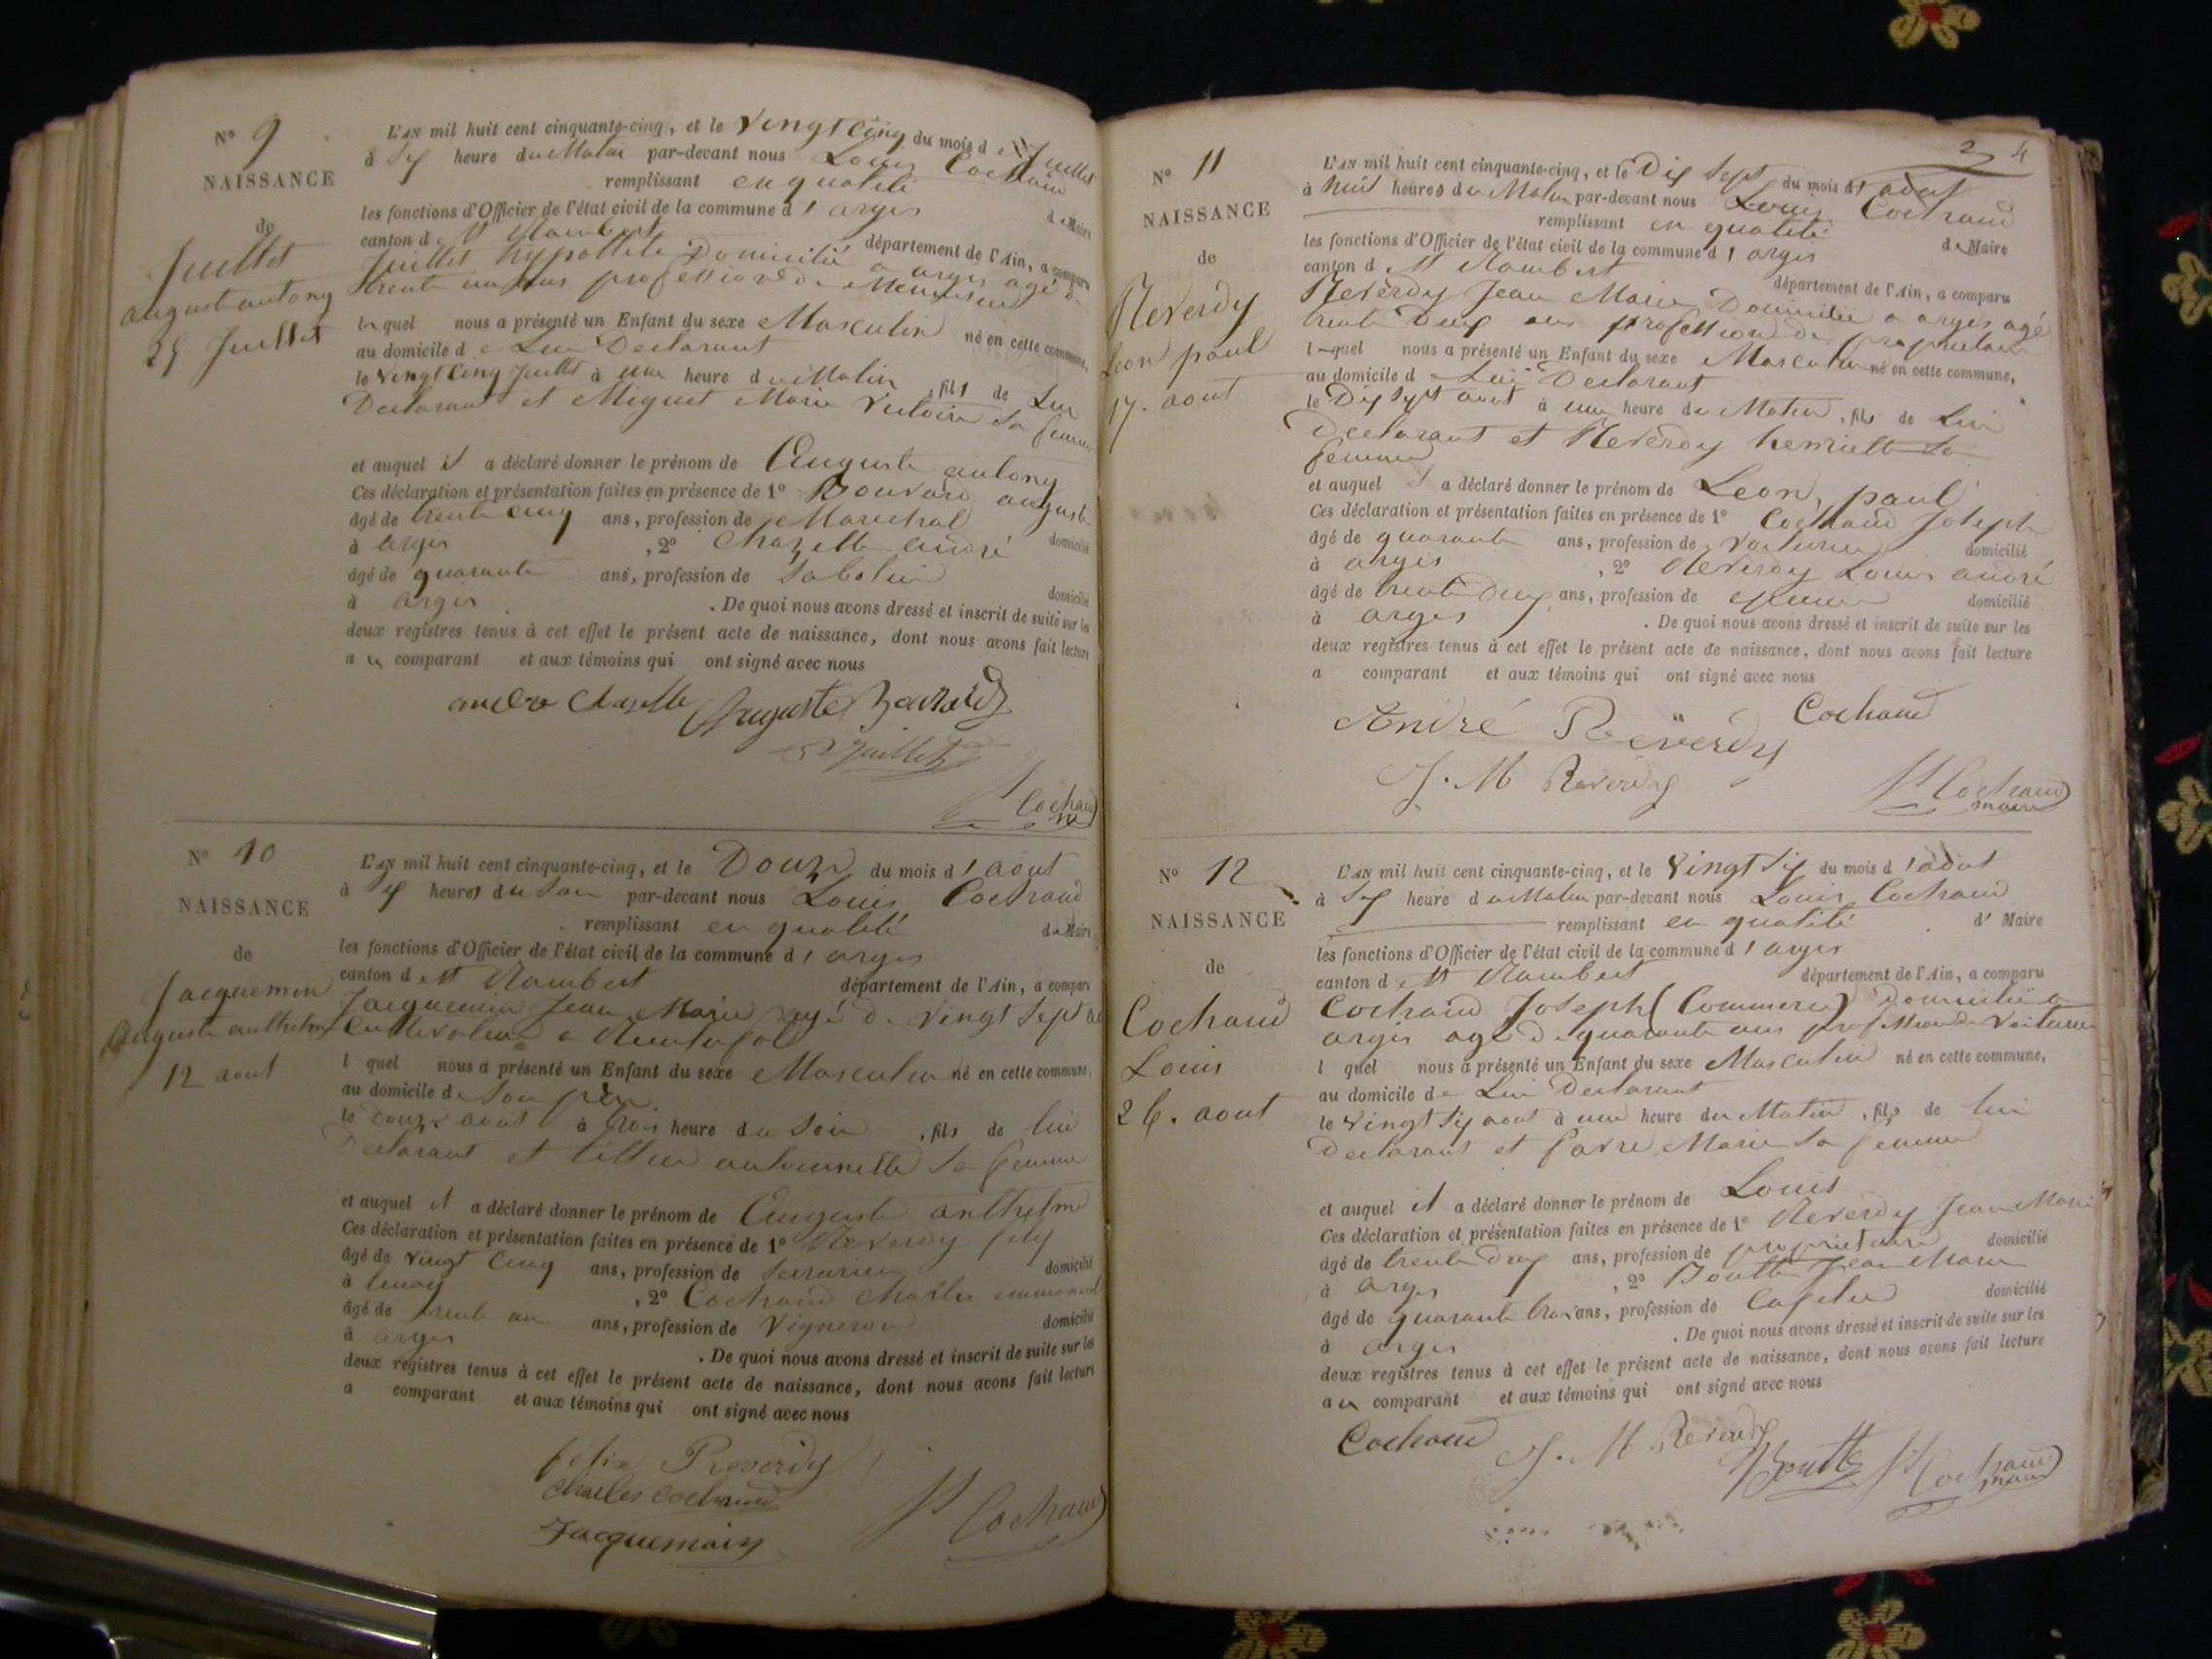 N° 9
NAISSANCE
de
Juillet
august antony
25 Juillet
L'AN mil huit cent cinquante-cinq, et le Vingt Cinq du mois de Juillet
à Six heure du Matin par-devant nous Louis Cochaud
remplissant en qualité de Maire
les fonctions d'Officier de l'état civil de la commune d'argis
canton de St Rambert département de l'Ain, a comparu
Juillet hypollite Domicilié a argis agé de
trente un ans profession de Menuisier
lequel nous a présenté un Enfant du sexe Masculin né en cette commune,
au domicile de Lui Declarant
le Vingt Cinq Juillet à une heure du Matin, fils de Lui
Declarant et Miguet Marie Victoire Sa femme
et auquel il a déclaré donner le prénom de Auguste antony
Ces déclaration et présentation faites en présence de 1° Bouvard auguste
âgé de trente cinq ans, profession de Marechal domicilié
à argis, 2° Chazelle andré
âgé de quarante ans, profession de Sabotier domicilié
à argis. De quoi nous avons dressé et inscrit de suite sur les
deux registres tenus à cet effet le présent acte de naissance, dont nous avons fait lecture
au comparant et aux témoins qui ont signé avec nous
andre Chazelle Auguste Bouvard
Juillet
Cochaud
N° 10
NAISSANCE
de
Jacquemin
Auguste anthelme
12 aout
L'AN mil huit cent cinquante-cinq, et le Douze du mois d'aout
à Six heures du Soir par-devant nous Louis Cochaud
remplissant en qualité de Maire
les fonctions d'Officier de l'état civil de la commune d'argis
canton de St Rambert département de l'Ain, a comparu
Jacquemin Jean Marie agé de Vingt Sept ans
Cultivateur a
l quel nous a présenté un Enfant du sexe Masculin né en cette commune,
au domicile de Son père
le Douze aout à trois heure du Soir, fils de lui
Declarant et antoinette Sa femme
et auquel il a déclaré donner le prénom de Auguste anthelme
Ces déclaration et présentation faites en présence de 1° Reverdy
âgé de Vingt Cinq ans, profession de Serrurier domicilié
à tenay, 2° Cochaud Charles emmanuel
âgé de trente un ans, profession de Vigneron domicilié
à argis. De quoi nous avons dressé et inscrit de suite sur les
deux registres tenus à cet effet le présent acte de naissance, dont nous avons fait lecture
a comparant et aux témoins qui ont signé avec nous
felix Reverdy
Charles Cochaud
Jacquemin
Cochaud
4
N° 11
NAISSANCE
de
Reverdy
Leon paul
17. aout
L'AN mil huit cent cinquante-cinq, et le Dix Sept du mois d'aout
à huit heures du Matin par-devant nous Louis Cochaud
remplissant en qualité de Maire
les fonctions d'Officier de l'état civil de la commune d'argis
canton d St Rambert département de l'Ain, a comparu
Reverdy Jean Marie Domicilié a argis agé
trente Deux ans profession de propriétaire
lequel nous a présenté un Enfant du sexe Masculin né en cette commune,
au domicile d Lui Declarant
le Dix Sept aout à une heure du Matin, fils de Lui
Declarant et Reverdy henriette Sa
femme
et auquel il a déclaré donner le prénom de Leon, paul
Ces déclaration et présentation faites en présence de 1° Cochaud Joseph
âgé de quarante ans, profession de Voiturier domicilié
à argis, 2° Reverdy Louis andré
âgé de trente Deux ans, profession de domicilié
à argis. De quoi nous avons dressé et inscrit de suite sur les
deux registres tenus à cet effet le présent acte de naissance, dont nous avons fait lecture
a comparant et aux témoins qui ont signé avec nous
André Reverdy Cochaud
J. M Reverdy
Cochaud
maire
N° 12
NAISSANCE
de
Cochaud
Louis
26. aout
L'AN mil huit cent cinquante-cinq, et le Vingt Six du mois d'aout
à Six heure du Matin par-devant nous Louis Cochaud
remplissant en qualité d' Maire
les fonctions d'Officier de l'état civil de la commune d'argis
canton de St Rambert département de l'Ain, a comparu
Cochaud Joseph (Commere) Domicilié a
argis agé de quarante ans profession de Voiturier
l quel nous a présenté un Enfant du sexe Masculin né en cette commune,
au domicile de Lui Declarant
le Vingt Six aout à une heure du Matin, fils de lui
Declarant et favre Marie Sa femme
et auquel il a déclaré donner le prénom de Louis
Ces déclaration et présentation faites en présence de 1° Reverdy Jean Marie
âgé de trente Deux ans, profession de propriétaire domicilié
à argis, 2° Boutte Jean Marie
âgé de quarante trois ans, profession de Cafetier domicilié
à argis. De quoi nous avons dressé et inscrit de suite sur les
deux registres tenus à cet effet le présent acte de naissance, dont nous avons fait lecture
au comparant et aux témoins qui ont signé avec nous
Cochaud J. M. Reverdy
Boutte Cochaud
maire